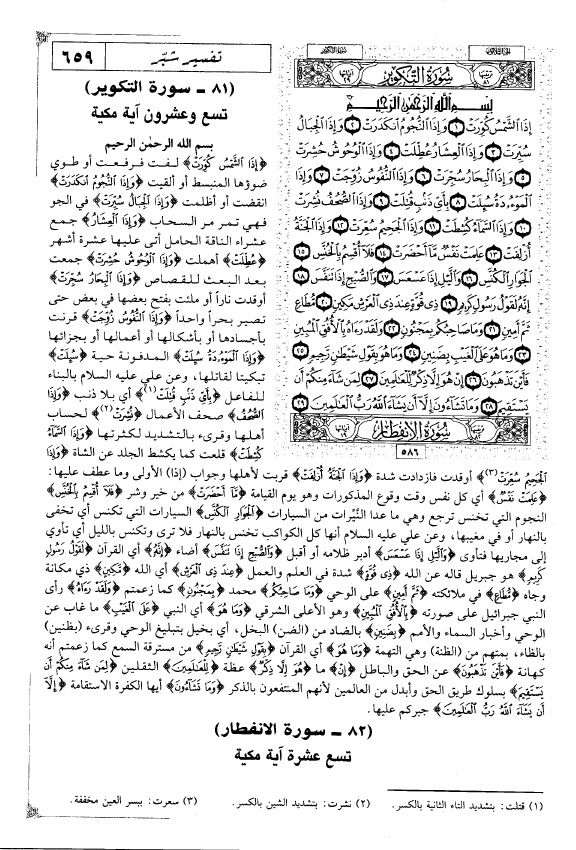 تفسير شبّر
٦٥٩
سُورَةُ التَّكْوِيرِ
بِسْمِ اللَّهِ الرَّحْمَٰنِ الرَّحِيمِ
إِذَا الشَّمْسُ كُوِّرَتْ ١ وَإِذَا النُّجُومُ انكَدَرَتْ ٢ وَإِذَا الْجِبَالُ
سُيِّرَتْ ٣ وَإِذَا الْعِشَارُ عُطِّلَتْ ٤ وَإِذَا الْوُحُوشُ حُشِرَتْ
٥ وَإِذَا الْبِحَارُ سُجِّرَتْ ٦ وَإِذَا النُّفُوسُ زُوِّجَتْ ٧ وَإِذَا
الْمَوْءُودَةُ سُئِلَتْ ٨ بِأَيِّ ذَنبٍ قُتِلَتْ ٩ وَإِذَا الصُّحُفُ نُشِرَتْ
١٠ وَإِذَا السَّمَاءُ كُشِطَتْ ١١ وَإِذَا الْجَحِيمُ سُعِّرَتْ ١٢ وَإِذَا الْجَنَّةُ
أُزْلِفَتْ ١٣ عَلِمَتْ نَفْسٌ مَّا أَحْضَرَتْ ١٤ فَلَا أُقْسِمُ بِالْخُنَّسِ ١٥
الْجَوَارِ الْكُنَّسِ ١٦ وَاللَّيْلِ إِذَا عَسْعَسَ ١٧ وَالصُّبْحِ إِذَا تَنَفَّسَ ١٨
إِنَّهُ لَقَوْلُ رَسُولٍ كَرِيمٍ ١٩ ذِي قُوَّةٍ عِندَ ذِي الْعَرْشِ مَكِينٍ ٢٠ مُّطَاعٍ
ثَمَّ أَمِينٍ ٢١ وَمَا صَاحِبُكُم بِمَجْنُونٍ ٢٢ وَلَقَدْ رَءَاهُ بِالْأُفُقِ الْمُبِينِ
٢٣ وَمَا هُوَ عَلَى الْغَيْبِ بِضَنِينٍ ٢٤ وَمَا هُوَ بِقَوْلِ شَيْطَانٍ رَّجِيمٍ ٢٥
فَأَيْنَ تَذْهَبُونَ ٢٦ إِنْ هُوَ إِلَّا ذِكْرٌ لِّلْعَالَمِينَ ٢٧ لِمَن شَاءَ مِنكُمْ أَن
يَسْتَقِيمَ ٢٨ وَمَا تَشَاءُونَ إِلَّا أَن يَشَاءَ اللَّهُ رَبُّ الْعَالَمِينَ ٢٩
سُورَةُ الِانفِطَارِ
٥٨٦
(٨١ ـ سورة التكوير)
تسع وعشرون آية مكية
بسم الله الرحمن الرحيم
﴿إِذَا الشَّمْسُ كُوِّرَتْ﴾ لفت فرفعت أو طوي
ضوؤها المنبسط أو ألقيت ﴿وَإِذَا النُّجُومُ انكَدَرَتْ﴾
انقضت أو أظلمت ﴿وَإِذَا الْجِبَالُ سُيِّرَتْ﴾ في الجو
فهي تمر مر السحاب ﴿وَإِذَا الْعِشَارُ﴾ جمع
عشراء الناقة الحامل أتى عليها عشرة أشهر
﴿عُطِّلَتْ﴾ أهملت ﴿وَإِذَا الْوُحُوشُ حُشِرَتْ﴾ جمعت
بعد البعث للقصاص ﴿وَإِذَا الْبِحَارُ سُجِّرَتْ﴾
أوقدت ناراً أو ملئت بفتح بعضها في بعض حتى
تصير بحراً واحداً ﴿وَإِذَا النُّفُوسُ زُوِّجَتْ﴾ قرنت
بأجسادها أو بأشكالها أو أعمالها أو بجزائها
﴿وَإِذَا الْمَوْءُودَةُ سُئِلَتْ﴾ المدفونة حية ﴿سُئِلَتْ﴾
تبكيتا لقاتلها، وعن علي عليه السلام بالبناء
للفاعل ﴿بِأَيِّ ذَنبٍ قُتِلَتْ﴾(١) أي بلا ذنب ﴿وَإِذَا
الصُّحُفُ﴾ صحف الأعمال ﴿نُشِرَتْ﴾(٢) لحساب
أهلها وقرىء بالتشديد لكثرتها ﴿وَإِذَا السَّمَاءُ
كُشِطَتْ﴾ قلعت كما يكشط الجلد عن الشاة ﴿وَإِذَا
الْجَحِيمُ سُعِّرَتْ﴾(٣) أوقدت فازدادت شدة ﴿وَإِذَا الْجَنَّةُ أُزْلِفَتْ﴾ قربت لأهلها وجواب (إذا) الأولى وما عطف عليها:
﴿عَلِمَتْ نَفْسٌ﴾ أي كل نفس وقت وقوع المذكورات وهو يوم القيامة ﴿مَّا أَحْضَرَتْ﴾ من خير وشر ﴿فَلَا أُقْسِمُ بِالْخُنَّسِ﴾
النجوم التي تخنس ترجع وهي ما عدا النّيّرات من السيارات ﴿الْجَوَارِ الْكُنَّسِ﴾ السيارات التي تكنس أي تخفى
بالنهار أو في مغيبها، وعن علي عليه السلام أنها كل الكواكب تخنس بالنهار فلا ترى وتكنس بالليل أي تأوي
إلى مجاريها فتأوى ﴿وَاللَّيْلِ إِذَا عَسْعَسَ﴾ أدبر ظلامه أو أقبل ﴿وَالصُّبْحِ إِذَا تَنَفَّسَ﴾ أضاء ﴿إِنَّهُ﴾ أي القرآن ﴿لَقَوْلُ رَسُولٍ
كَرِيمٍ﴾ هو جبريل قاله عن الله ﴿ذِي قُوَّةٍ﴾ شدة في العلم والعمل ﴿عِندَ ذِي الْعَرْشِ﴾ أي الله ﴿مَكِينٍ﴾ ذي مكانة
وجاه ﴿مُّطَاعٍ﴾ في ملائكته ﴿ثَمَّ أَمِينٍ﴾ على الوحي ﴿وَمَا صَاحِبُكُم﴾ محمد ﴿بِمَجْنُونٍ﴾ كما زعمتم ﴿وَلَقَدْ رَءَاهُ﴾ رأى
النبي جبرائيل على صورته ﴿بِالْأُفُقِ الْمُبِينِ﴾ وهو الأعلى الشرقي ﴿وَمَا هُوَ﴾ أي النبي ﴿عَلَى الْغَيْبِ﴾ ما غاب عن
الوحي وأخبار السماء والأمم ﴿بِضَنِينٍ﴾ بالضاد من (الضن) البخل، أي بخيل بتبليغ الوحي وقرىء (بظنين)
بالظاء، بمتهم من (الظنة) وهي التهمة ﴿وَمَا هُوَ﴾ أي القرآن ﴿بِقَوْلِ شَيْطَانٍ رَّجِيمٍ﴾ من مسترقة السمع كما زعمتم أنه
كهانة ﴿فَأَيْنَ تَذْهَبُونَ﴾ عن الحق والباطل ﴿إِنْ﴾ ما ﴿هُوَ إِلَّا ذِكْرٌ﴾ عظة ﴿لِّلْعَالَمِينَ﴾ الثقلين ﴿لِمَن شَاءَ مِنكُمْ أَن
يَسْتَقِيمَ﴾ بسلوك طريق الحق وأبدل من العالمين لأنهم المنتفعون بالذكر ﴿وَمَا تَشَاءُونَ﴾ أيها الكفرة الاستقامة ﴿إِلَّا
أَن يَشَاءَ اللَّهُ رَبُّ الْعَالَمِينَ﴾ جبركم عليها.
(٨٢ ـ سورة الانفطار)
تسع عشرة آية مكية
(١) قتلت: بتشديد التاء الثانية بالكسر. (٢) نشرت: بتشديد الشين بالكسر. (٣) سعرت: بيسر العين مخففة.